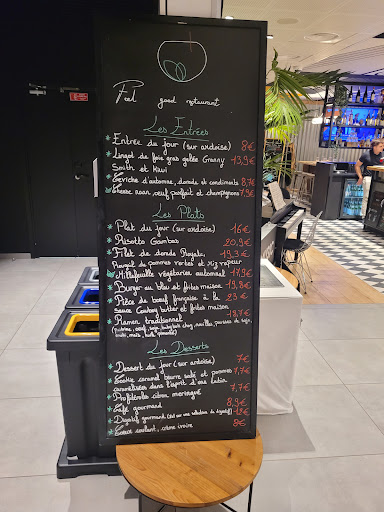 Feel good restaurant
Les Entrées
Entrée du jour (sur ardoise) 8€
Lingot de foie gras gelée Granny 13,9€
Smith et Kiwi
Ceviche d'automne, dorade et condiments 8,7€
Cheese naan, oeuf parfait et champignons 7,9€
Les Plats
Plat du jour (sur ardoise) 16€
Risotto Gambas 20,9€
Filet de dorade Royale 19,3€
pommes vertes et riz vapeur
Millefeuille végétarien automnal 17,9€
Burger au bleu et frites maison 19,8€
Pièce de boeuf française à la 23€
Sauce Cowboy butter et frites maison
Ramen traditionnel 18,7€
Les Desserts
Dessert du jour (sur ardoise) 7€
Cookie caramel beurre salé et pommes 7,7€
caramélisées dans l'esprit d'une tatin
Profiterole citron meringué 7,7€
Café gourmand 8,9€
Digestif gourmand
coulant, crème ivoire 8€